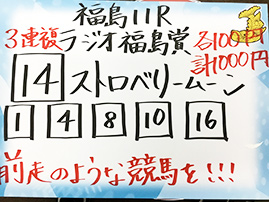 福島11R
3連複 ラジオ福島賞 各100円
計1000円
14 ストロベリームーン
1 4 8 10 16
前走のような競馬を!!!